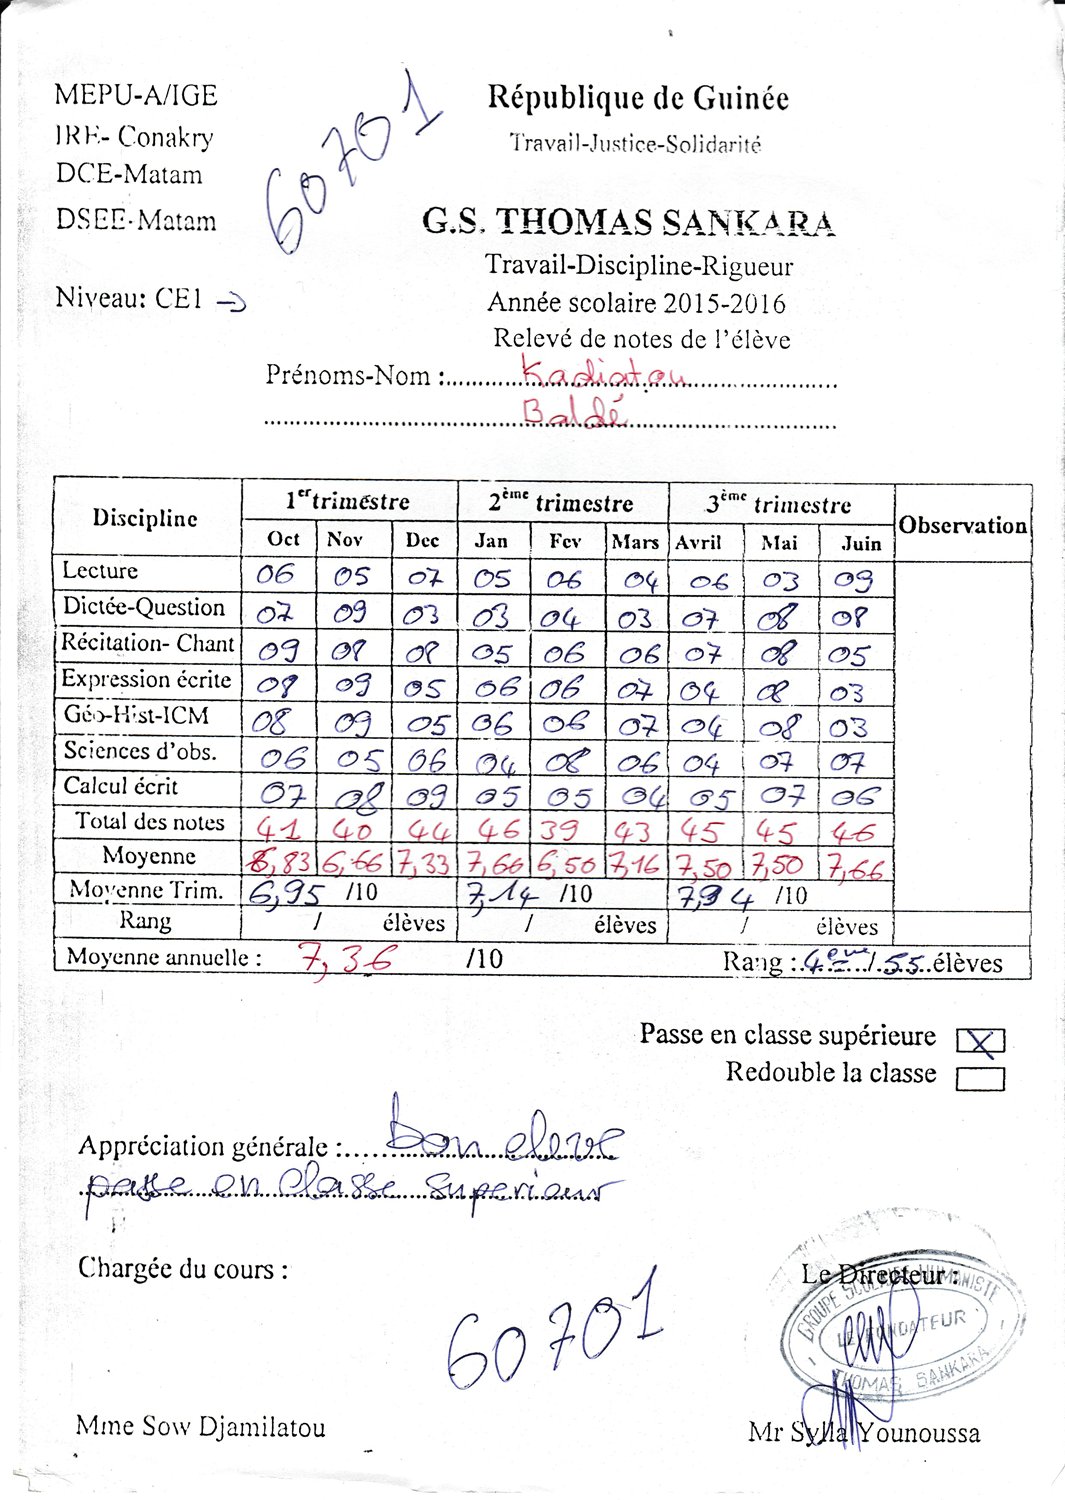 MEPU-A/IGE
IRE- Conakry
DCE-Matam
DSEE-Matam
Niveau: CE1
60701
République de Guinée
Travail-Justice-Solidarité
G.S. THOMAS SANKARA
Travail-Discipline-Rigueur
Année scolaire 2015-2016
Relevé de notes de l'élève
Prénoms-Nom : Kadiatou
Baldé
Discipline 1er trimestre 2ème trimestre 3ème trimestre Observation
Oct Nov Dec Jan Fev Mars Avril Mai Juin
Lecture 06 05 07 05 06 04 06 03 09
Dictée-Question 07 09 03 03 04 03 07 08 08
Récitation- Chant 09 08 08 05 06 06 07 08 05
Expression écrite 08 09 05 06 06 07 04 08 03
Géo-Hist-ICM 08 09 05 06 06 07 04 08 03
Sciences d'obs. 06 05 06 04 08 06 04 07 07
Calcul écrit 07 08 09 05 05 04 05 07 06
Total des notes 41 40 44 46 39 43 45 45 46
Moyenne 6,83 6,66 7,33 7,66 6,50 7,16 7,50 7,50 7,66
Moyenne Trim. 6,95 /10 7,14 /10 7,94 /10
Rang / élèves / élèves / élèves
Moyenne annuelle : 7,36 /10 Rang : 4ème / 55 élèves
Passe en classe supérieure X
Redouble la classe
Appréciation générale : bon eleve
passe en classe superieur
Chargée du cours :
Le Directeur :
GROUPE SCOLAIRE HUMANISTE
LE FONDATEUR
THOMAS SANKARA
60701
Mme Sow Djamilatou
Mr Sylla Younoussa